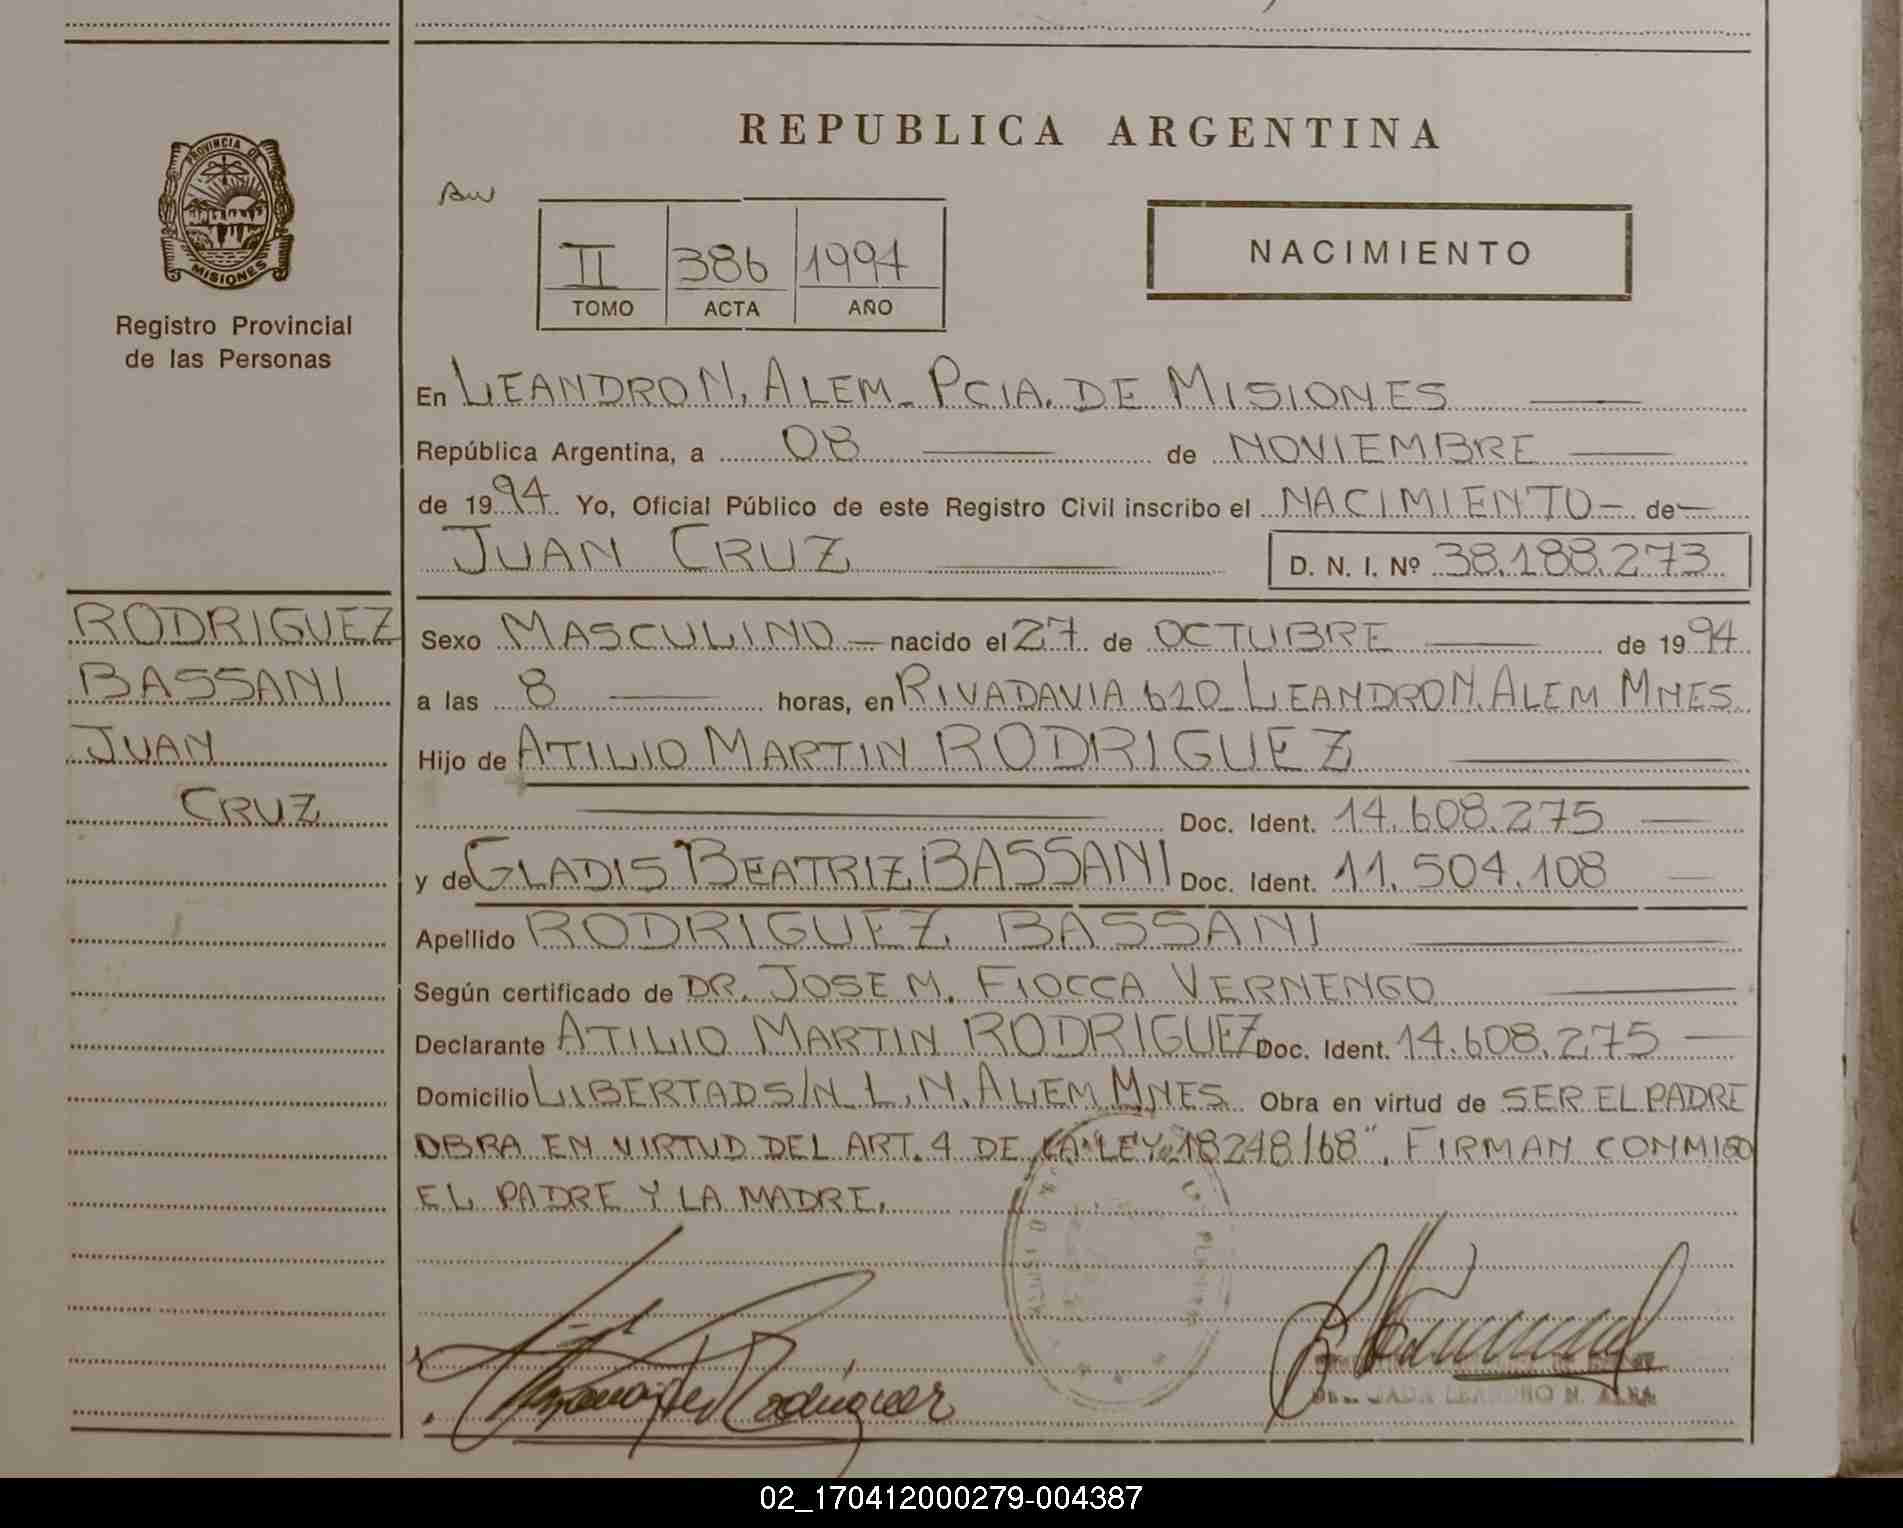 PROVINCIA DE
MISIONES
Registro Provincial
de las Personas
REPUBLICA ARGENTINA
II 386 1994
TOMO ACTA AÑO
NACIMIENTO
En LEANDRO N. ALEM_ PCIA. DE MISIONES
República Argentina, a 08 de NOVIEMBRE
de 1994 Yo, Oficial Público de este Registro Civil inscribo el NACIMIENTO - de -
JUAN CRUZ D. N. I. Nº 38.188.273
RODRIGUEZ
BASSANI
JUAN
CRUZ
Sexo MASCULINO — nacido el 27 de OCTUBRE de 1994
a las 8 horas, en RIVADAVIA 620_ LEANDRO N. ALEM MNES.
Hijo de ATILIO MARTIN RODRIGUEZ
Doc. Ident. 14.608.275
y de GLADIS BEATRIZ BASSANI Doc. Ident. 11.504.108
Apellido RODRIGUEZ BASSANI
Según certificado de DR. JOSE M. FIOCCA VERNENGO
Declarante ATILIO MARTIN RODRIGUEZ Doc. Ident. 14.608.275
Domicilio LIBERTAD S/N L. N. ALEM MNES. Obra en virtud de SER EL PADRE
OBRA EN VIRTUD DEL ART. 4 DE "LA LEY 18248/68". FIRMAN CONMIGO
EL PADRE Y LA MADRE.
Rodriguez
02_170412000279-004387